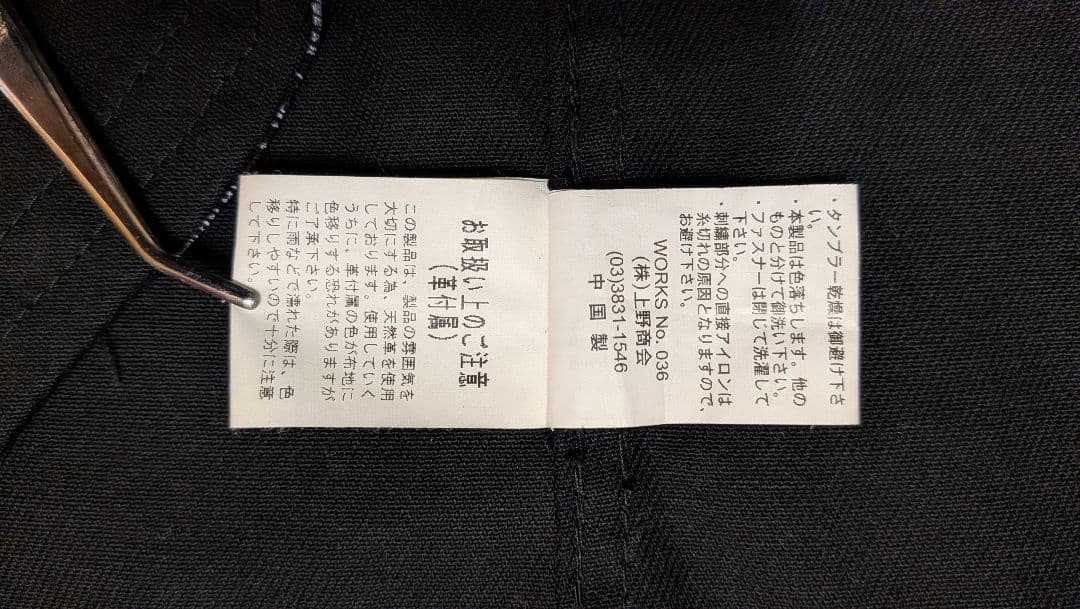 ・タンブラー乾燥は御避け下さ
い。
・本製品は色落ちします。他の
ものと分けて御洗い下さい。
・ファスナーは閉じて洗濯して
下さい。
・刺繍部分への直接アイロンは
糸切れの原因となりますので、
お避け下さい。
WORKS No. 036
(株)上野商会
(03)3831-1546
中国製
お取扱い上のご注意
(革付属)
この製品は、製品の雰囲気を
大切にする為、天然革を使用
しております。使用していく
うちに、革付属の色が布地に
色移りする恐れがありますが
ご了承下さい。
特に雨などで濡れた際は、色
移りしやすいので十分に注意
して下さい。